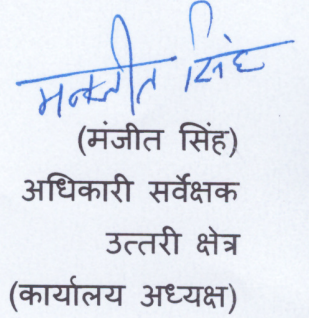 मनजीत सिंह
(मंजीत सिंह)
अधिकारी सर्वेक्षक
उत्तरी क्षेत्र
(कार्यालय अध्यक्ष)